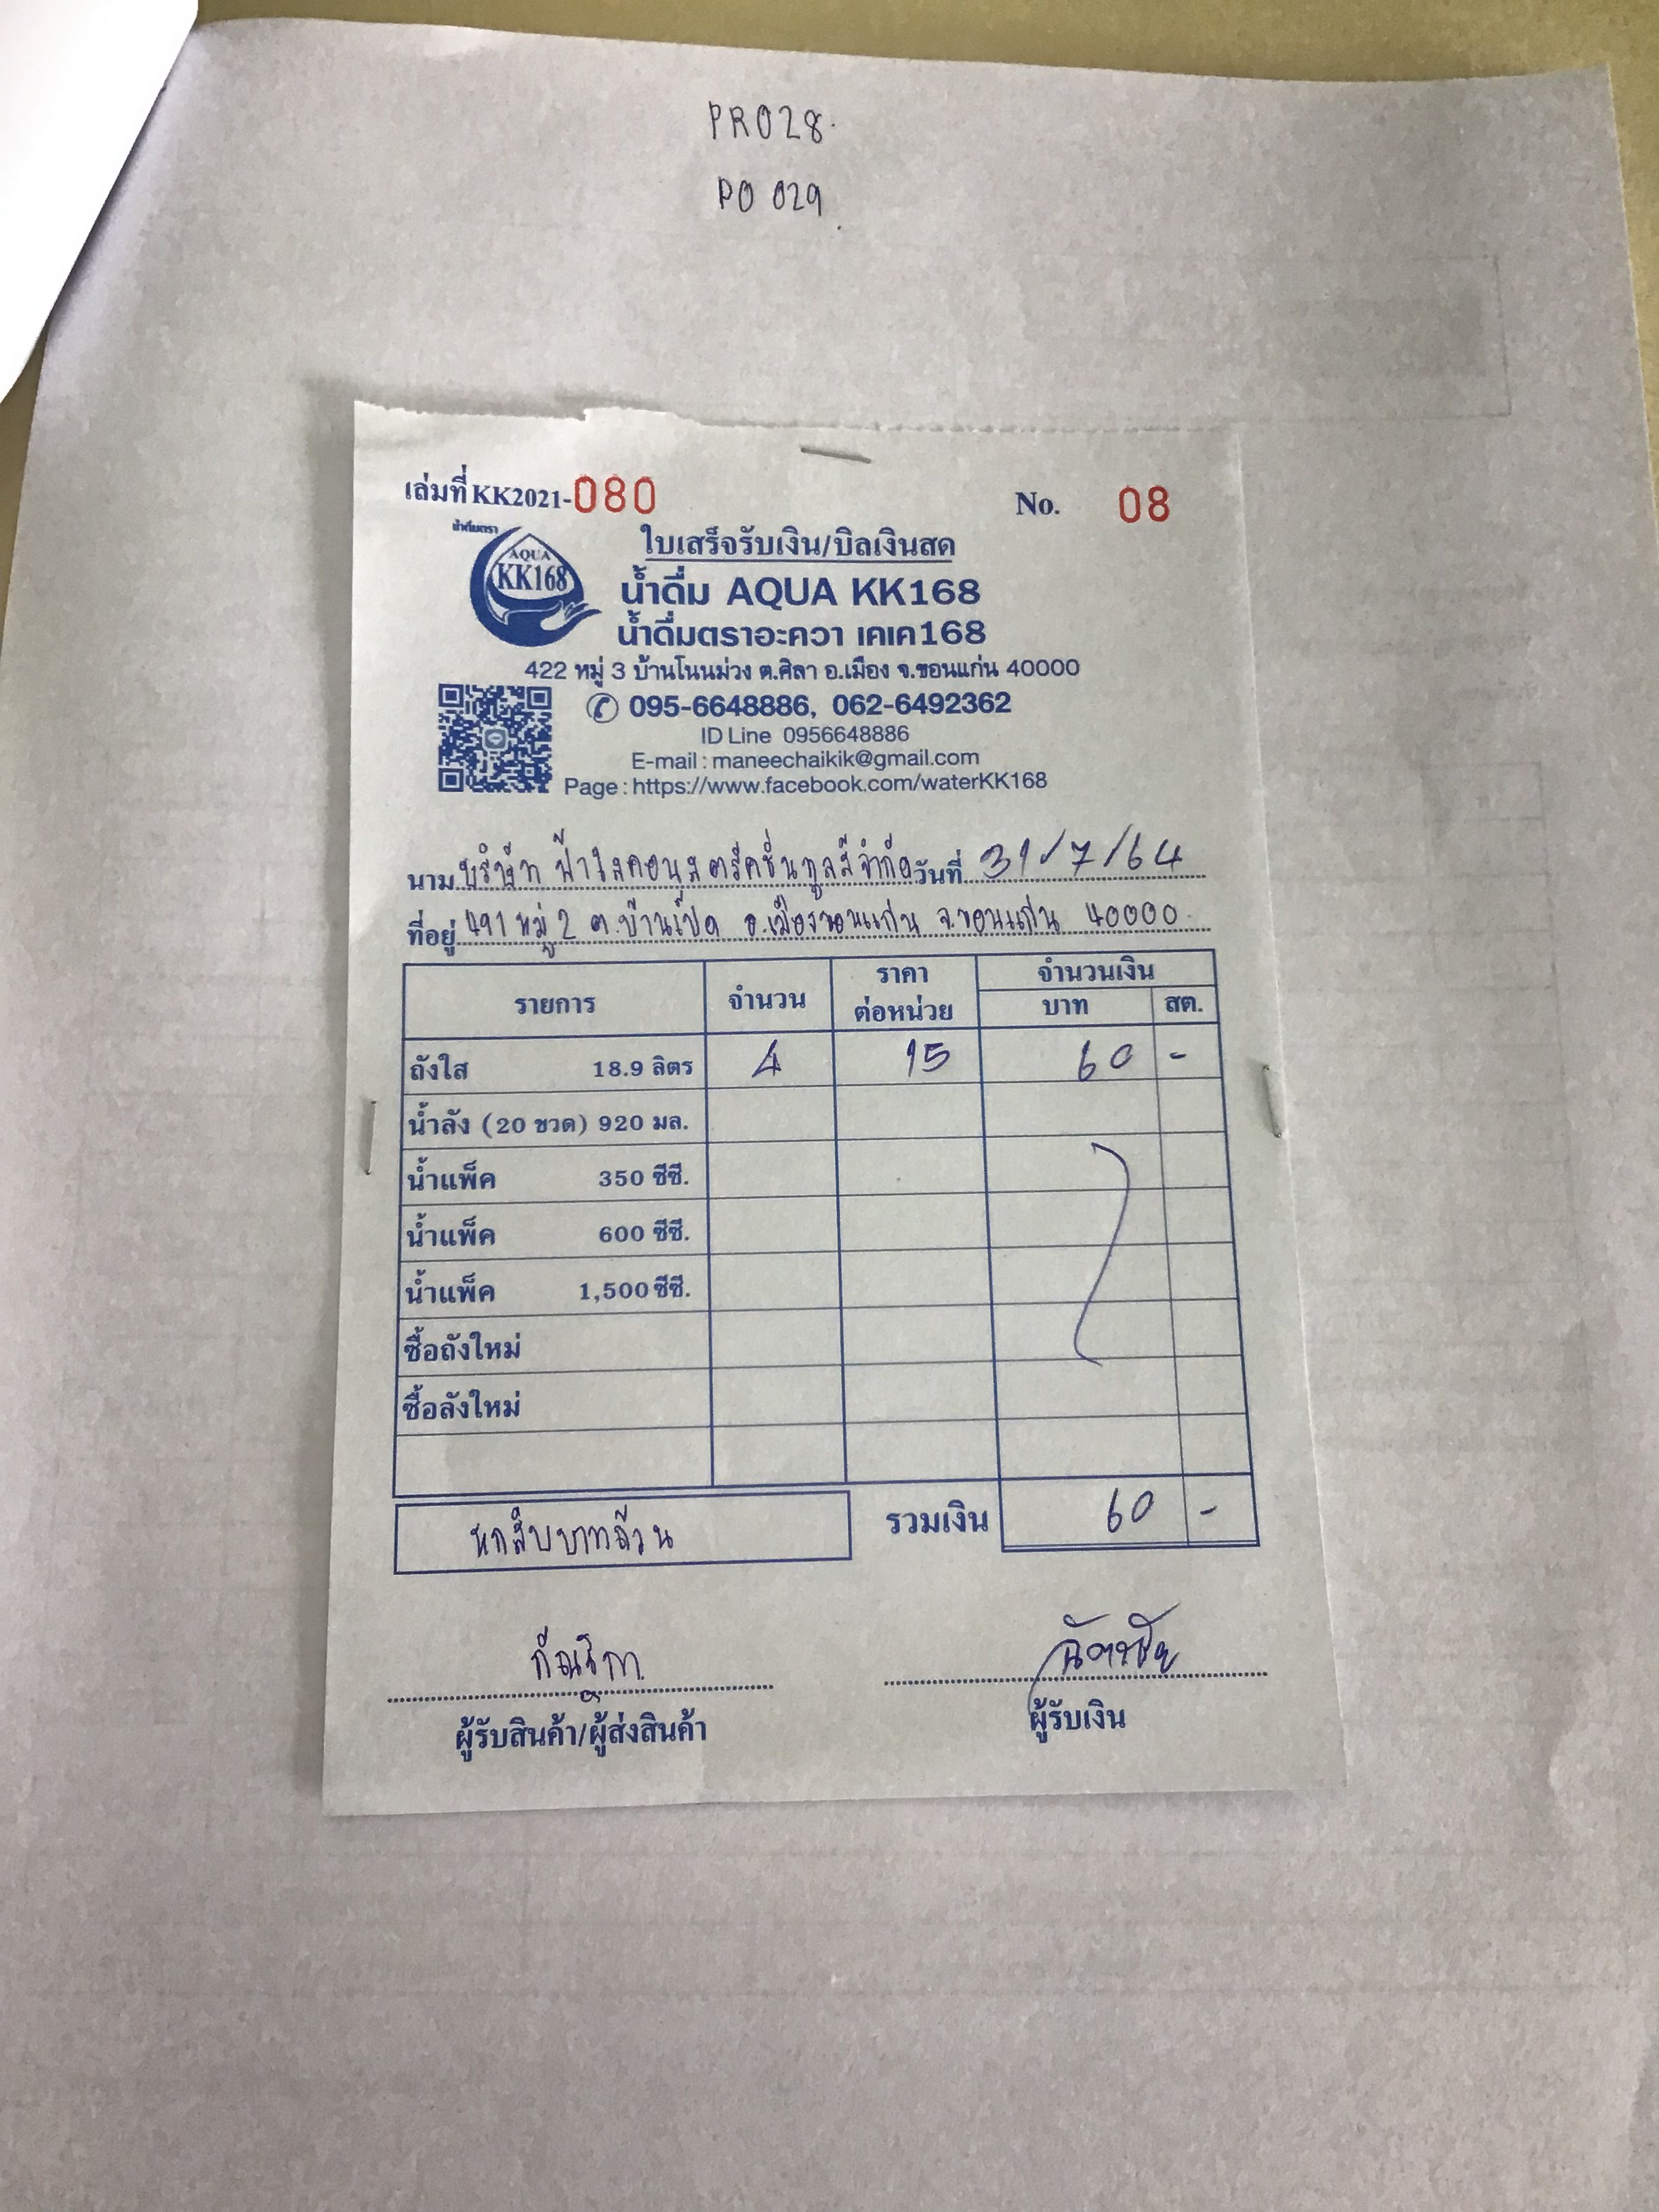 PR028.
PO 029.
เล่มที่ KK2021-080
No. 08
ใบเสร็จรับเงิน/บิลเงินสด
น้ำดื่มตรา
AQUA
KK168
น้ำดื่ม AQUA KK168
น้ำดื่มตราอะควา เคเค168
422 หมู่ 3 บ้านโนนม่วง ต.ศิลา อ.เมือง จ.ขอนแก่น 40000
095-6648886, 062-6492362
ID Line 0956648886
E-mail : maneechaikik@gmail.com
Page : https://www.facebook.com/waterKK168
นาม บริษัท ฟ้าใสคอนสตรัคชั่นกูลส์จำกัด วันที่ 31/7/64
ที่อยู่ 491 หมู่ 2 ต.บ้านเป็ด อ.เมืองขอนแก่น จ.ขอนแก่น 40000.
รายการ จำนวน ราคาต่อหน่วย จำนวนเงิน บาท สต.
ถังใส 18.9 ลิตร 4 15 60 -
น้ำลัง (20 ขวด) 920 มล.
น้ำแพ็ค 350 ซีซี.
น้ำแพ็ค 600 ซีซี.
น้ำแพ็ค 1,500 ซีซี.
ซื้อถังใหม่
ซื้อลังใหม่
หกสิบบาทถ้วน รวมเงิน 60 -
ผู้รับสินค้า/ผู้ส่งสินค้า ผู้รับเงิน